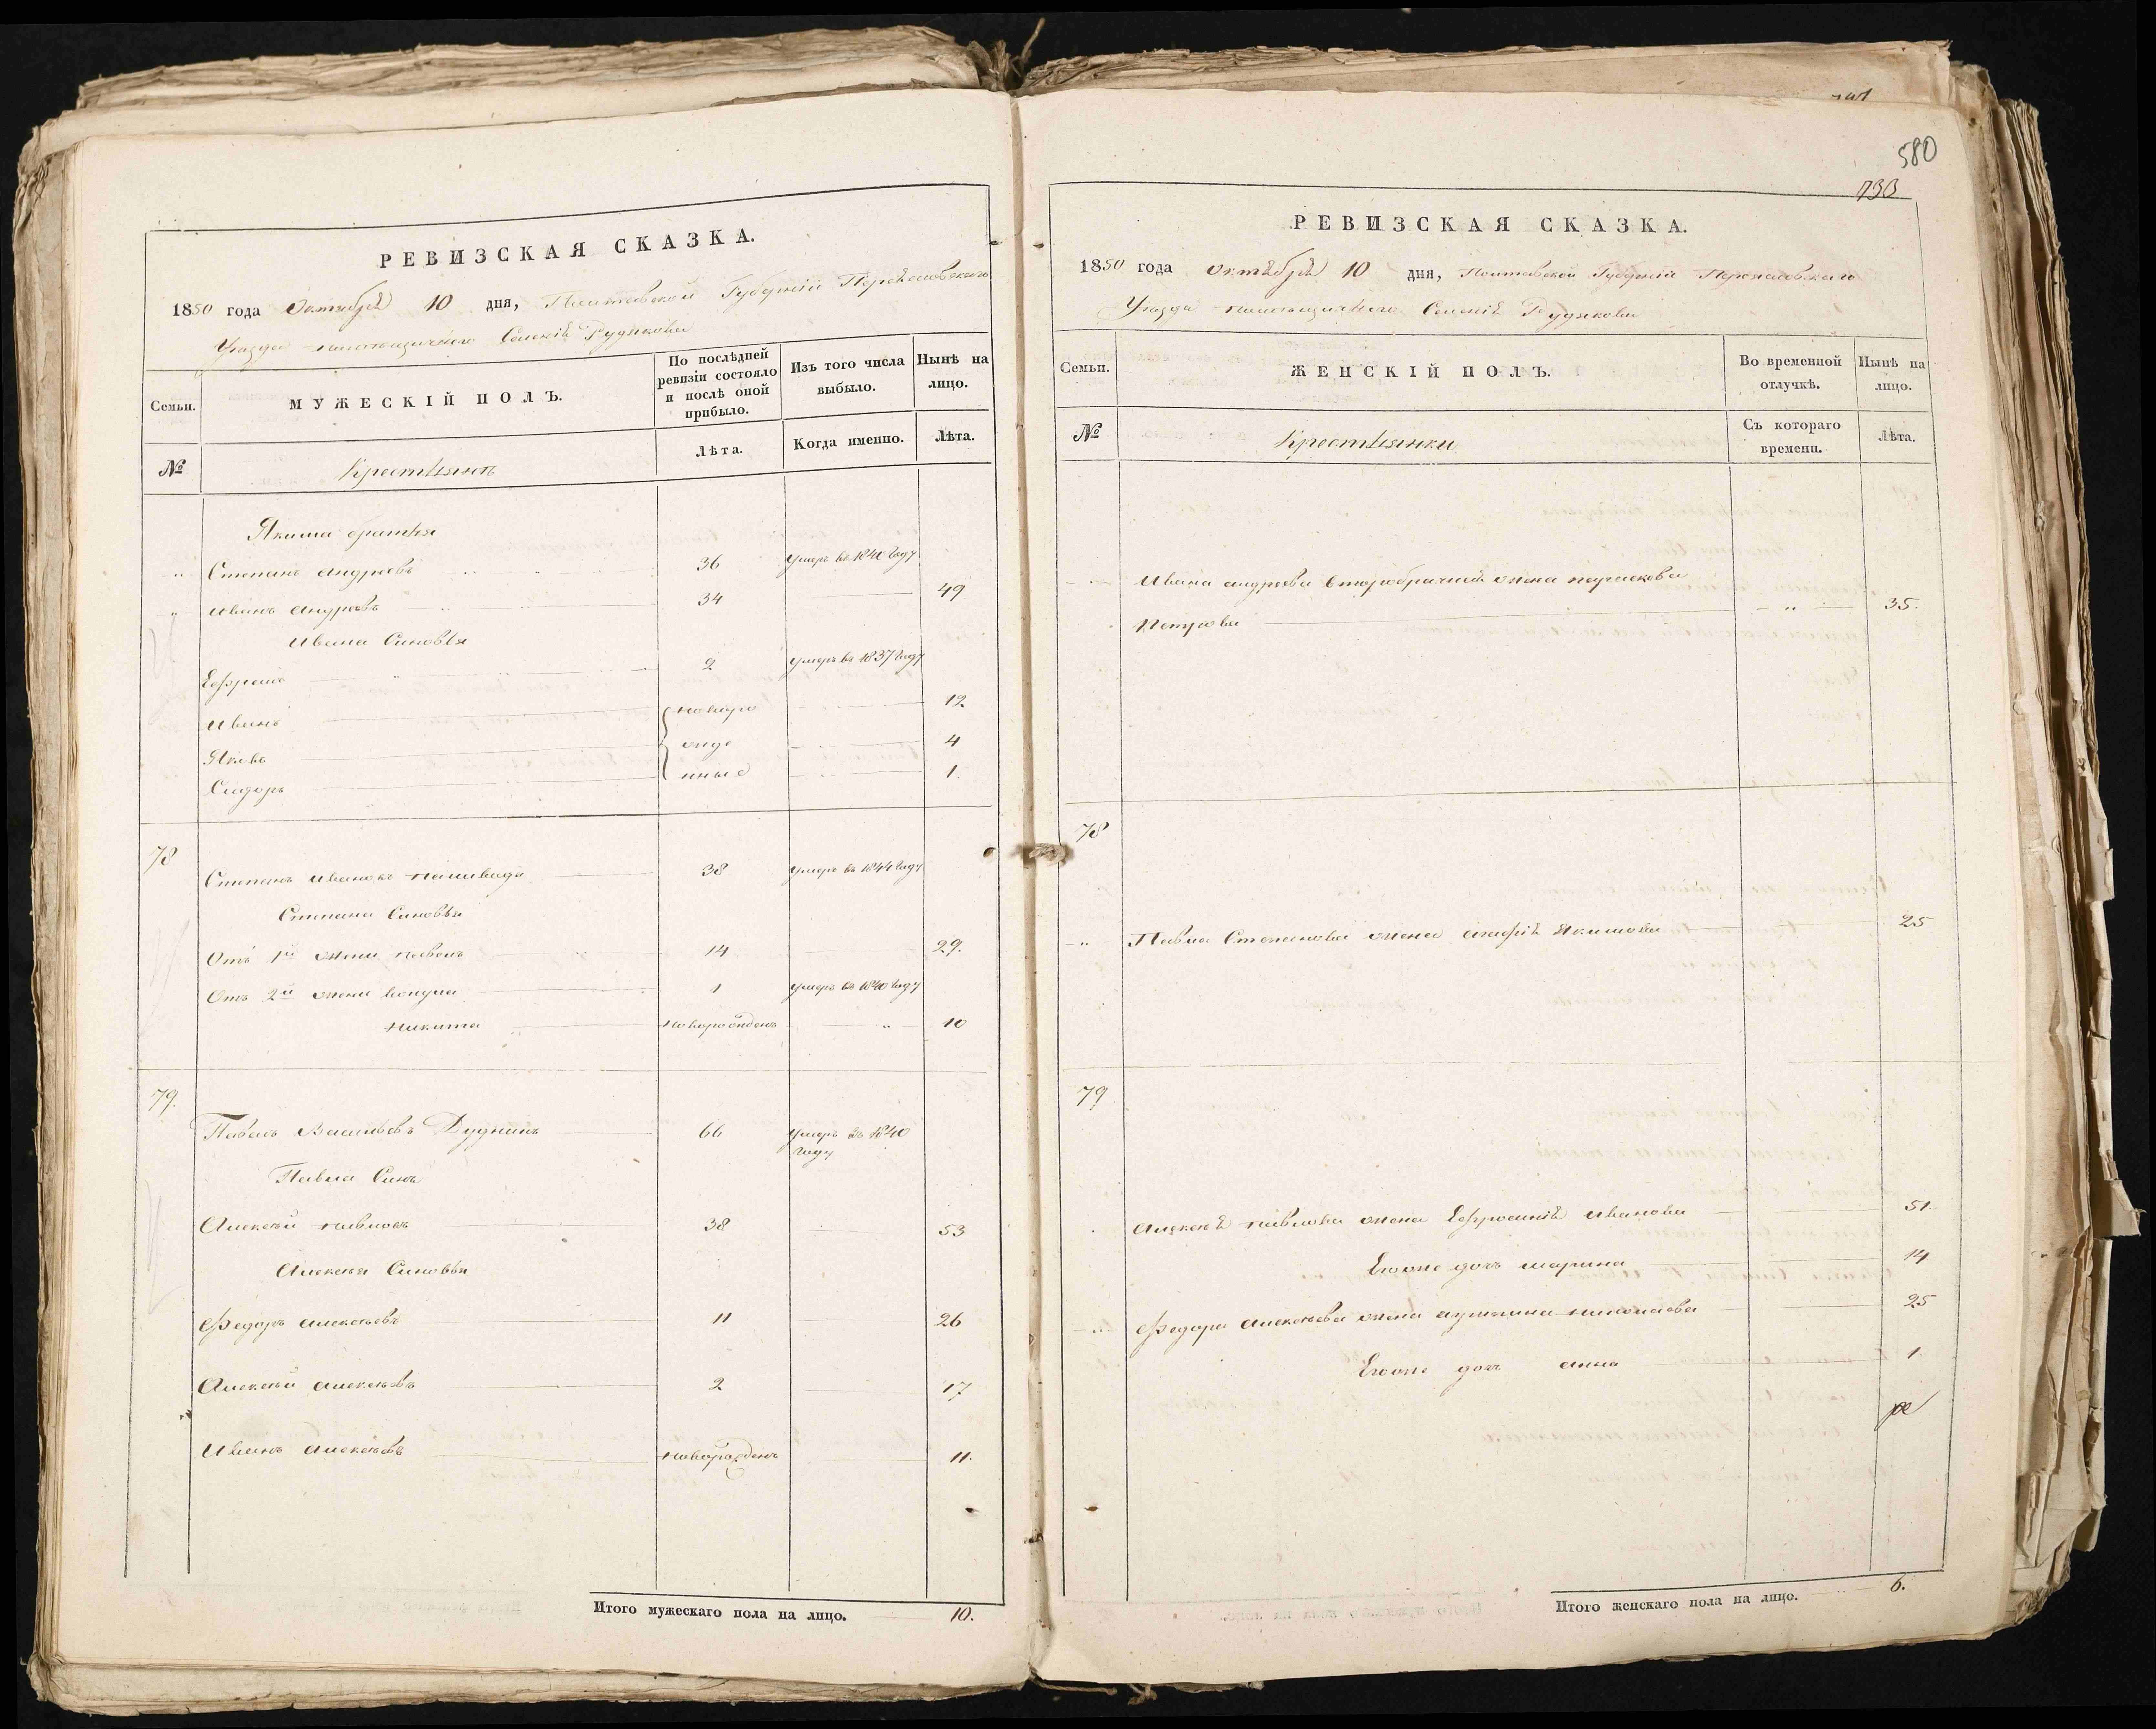 РЕВИЗСКАЯ СКАЗКА.
1850 года Октября 10 дня, Полтавской Губерніи Переяславского
Уезда Селенія Рудяковы
Семьи.
МУЖЕСКІЙ ПОЛЪ.
По послѣдней ревизіи состояло и послѣ оной прибыло.
Изъ того числа выбыло.
Нынѣ на лицо.
№
Крестьяне
Лѣта.
Когда именно.
Лѣта.
Якима братья
„ Степанъ Андреевъ 36 умеръ въ 1840 году
„ Иванъ Андреевъ 34 49
Ивана Синовья
Ефремъ 2 умеръ въ 1837 году
Иванъ новоро 12
Яковъ жде 4
Сидоръ нные 1
78
Степанъ Ивановъ 38 умеръ въ 1844 году
Степана Синовья
Отъ 1й жени Павелъ 14 29.
Отъ 2й жени 1 умеръ въ 1840 году
Никита новорожденъ „ 10
79.
Павелъ Васильевъ Дудникъ 66 умеръ въ 1840
году
Павла Синъ
Алексѣй Павловъ 38 53
Алексѣя Синовья
Федоръ Алексѣевъ 11 26
Алексѣй Алексѣевъ 2 17
Иванъ Алексѣевъ новорожденъ 11.
Итого мужескаго пола на лицо. 10.
580
733
РЕВИЗСКАЯ СКАЗКА.
1850 года Октября 10 дня, Полтавской Губерніи Переяславского
Уезда Селенія Рудяковы
Семьи.
ЖЕНСКІЙ ПОЛЪ.
Во временной отлучкѣ.
Нынѣ на лицо.
№
Крестьянки
Съ котораго времени.
Лѣта.
Ивана Андреева второбрачная жена Парасковья
Петрова „ 35.
78
„ Павла Степанова жена Якимова 25
79
Алексѣя Павлова жена Ефросинія Иванова 51.
Егоже дочь Марина 14
Федора Алексѣева жена Николаева 25
Егоже дочь Анна 1
Итого женскаго пола на лицо. 6.